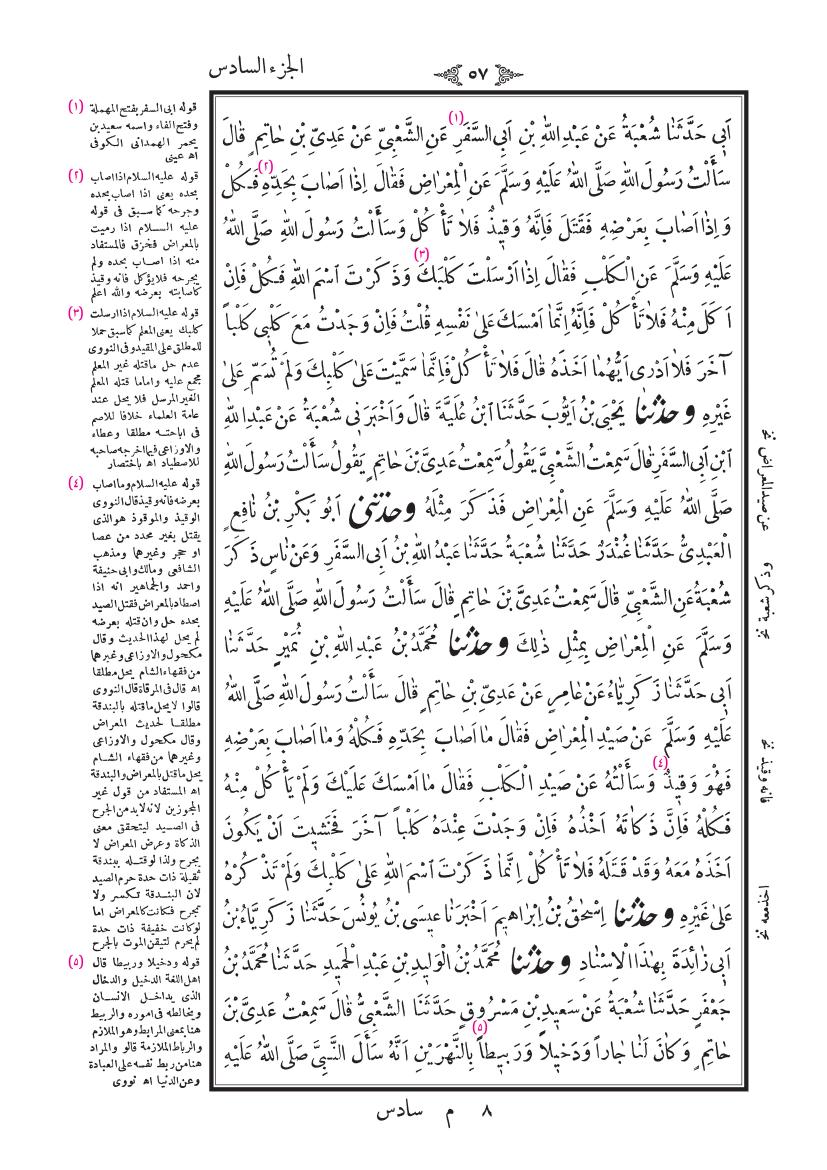 الجزء السادس
٥٧
اَبِى حَدَّثَنَا شُعْبَةُ عَنْ عَبْدِ اللّٰهِ بْنِ اَبِى السَّفَرِ (١) عَنِ الشَّعْبِىِّ عَنْ عَدِىِّ بْنِ حَاتِمٍ قَالَ
سَأَلْتُ رَسُولَ اللّٰهِ صَلَّى اللّٰهُ عَلَيْهِ وَسَلَّمَ عَنِ الْمِعْرَاضِ فَقَالَ اِذَا اَصَابَ بِحَدِّهِ (٢) فَكُلْ
وَاِذَا اَصَابَ بِعَرْضِهِ فَقَتَلَ فَاِنَّهُ وَقِيذٌ فَلَا تَأْكُلْ وَسَأَلْتُ رَسُولَ اللّٰهِ صَلَّى اللّٰهُ
عَلَيْهِ وَسَلَّمَ عَنِ الْكَلْبِ فَقَالَ اِذَا اَرْسَلْتَ كَلْبَكَ (٣) وَذَكَرْتَ اسْمَ اللّٰهِ فَكُلْ فَاِنْ
اَكَلَ مِنْهُ فَلَا تَأْكُلْ فَاِنَّهُ اِنَّمَا اَمْسَكَ عَلٰى نَفْسِهِ قُلْتُ فَاِنْ وَجَدْتُ مَعَ كَلْبِى كَلْباً
آخَرَ فَلَا اَدْرِى اَيُّهُمَا اَخَذَهُ قَالَ فَلَا تَأْكُلْ فَاِنَّمَا سَمَّيْتَ عَلٰى كَلْبِكَ وَلَمْ تُسَمِّ عَلٰى
غَيْرِهِ وحدثنا يَحْيَى بْنُ اَيُّوبَ حَدَّثَنَا ابْنُ عُلَيَّةَ قَالَ وَاَخْبَرَنِى شُعْبَةُ عَنْ عَبْدِ اللّٰهِ
ابْنِ اَبِى السَّفَرِ قَالَ سَمِعْتُ الشَّعْبِىَّ يَقُولُ سَمِعْتُ عَدِىَّ بْنَ حَاتِمٍ يَقُولُ سَأَلْتُ رَسُولَ اللّٰهِ
صَلَّى اللّٰهُ عَلَيْهِ وَسَلَّمَ عَنِ الْمِعْرَاضِ فَذَكَرَ مِثْلَهُ وحدثنى اَبُو بَكْرِ بْنُ نَافِعٍ
الْعَبْدِىُّ حَدَّثَنَا غُنْدَرٌ حَدَّثَنَا شُعْبَةُ حَدَّثَنَا عَبْدُ اللّٰهِ بْنُ اَبِى السَّفَرِ وَعَنْ نَاسٍ ذَكَرَ
شُعْبَةُ عَنِ الشَّعْبِىِّ قَالَ سَمِعْتُ عَدِىَّ بْنَ حَاتِمٍ قَالَ سَأَلْتُ رَسُولَ اللّٰهِ صَلَّى اللّٰهُ عَلَيْهِ
وَسَلَّمَ عَنِ الْمِعْرَاضِ بِمِثْلِ ذٰلِكَ وحدثنا مُحَمَّدُ بْنُ عَبْدِ اللّٰهِ بْنِ نُمَيْرٍ حَدَّثَنَا
اَبِى حَدَّثَنَا زَكَرِيَّاءُ عَنْ عَامِرٍ عَنْ عَدِىِّ بْنِ حَاتِمٍ قَالَ سَأَلْتُ رَسُولَ اللّٰهِ صَلَّى اللّٰهُ
عَلَيْهِ وَسَلَّمَ عَنْ صَيْدِ الْمِعْرَاضِ فَقَالَ مَا اَصَابَ بِحَدِّهِ فَكُلْهُ وَمَا اَصَابَ بِعَرْضِهِ
فَهُوَ وَقِيذٌ (٤) وَسَأَلْتُهُ عَنْ صَيْدِ الْكَلْبِ فَقَالَ مَا اَمْسَكَ عَلَيْكَ وَلَمْ يَأْكُلْ مِنْهُ
فَكُلْهُ فَاِنَّ ذَكَاتَهُ اَخْذُهُ فَاِنْ وَجَدْتَ عِنْدَهُ كَلْباً آخَرَ فَخَشِيتَ اَنْ يَكُونَ
اَخَذَهُ مَعَهُ وَقَدْ قَتَلَهُ فَلَا تَأْكُلْ اِنَّمَا ذَكَرْتَ اسْمَ اللّٰهِ عَلٰى كَلْبِكَ وَلَمْ تَذْكُرْهُ
عَلٰى غَيْرِهِ وحدثنا اِسْحٰقُ بْنُ اِبْرَاهِيمَ اَخْبَرَنَا عِيسَى بْنُ يُونُسَ حَدَّثَنَا زَكَرِيَّاءُ بْنُ
اَبِى زَائِدَةَ بِهٰذَا الْاِسْنَادِ وحدثنا مُحَمَّدُ بْنُ الْوَلِيدِ بْنِ عَبْدِ الْحَمِيدِ حَدَّثَنَا مُحَمَّدُ بْنُ
جَعْفَرٍ حَدَّثَنَا شُعْبَةُ عَنْ سَعِيدِ بْنِ مَسْرُوقٍ حَدَّثَنَا الشَّعْبِىُّ قَالَ سَمِعْتُ عَدِىَّ بْنَ
حَاتِمٍ وَكَانَ لَنَا جَاراً وَدَخِيلاً وَرَبِيطاً (٥) بِالنَّهْرَيْنِ اَنَّهُ سَأَلَ النَّبِىَّ صَلَّى اللّٰهُ عَلَيْهِ
عن صيد المعراض نخ
وذكر شعبة نخ
فانه وقيذ نخ
اخذ معه نخ
(١) قوله ابى السفر بفتح المهملة
وفتح الفاء واسمه سعيد بن
يحمر الهمدانى الكوفى
اه عينى
(٢) قوله عليه السلام اذا اصاب
بحده يعنى اذا اصاب بحده
وجرحه كما سبق فى قوله
عليه السلام اذا رميت
بالمعراض فخزق فالمستفاد
منه اذا اصاب بحده ولم
يجرحه فلايؤكل فانه وقيذ
كاصابته بعرضه والله اعلم
(٣) قوله عليه السلام اذا ارسلت
كلبك يعنى المعلم كاسبق حملا
للمطلق على المقيد وفى النووى
عدم حل ماقتله غير المعلم
مجمع عليه واماما قتله المعلم
الغير المرسل فلا يحل عند
عامة العلماء خلافا للاصم
فى اباحته مطلقا وعطاء
والاوزاعى فيما اخرجه صاحبه
للاصطياد اه باختصار
(٤) قوله عليه السلام وما اصاب
بعرضه فانه وقيذ قال النووى
الوقيذ والموقوذ هو الذى
يقتل بغير محدد من عصا
او حجر وغيرهما ومذهب
الشافعى ومالك وابى حنيفة
واحمد والجماهير انه اذا
اصطاد بالمعراض فقتل الصيد
بحده حل وان قتله بعرضه
لم يحل لهذا الحديث وقال
مكحول والاوزاعى وغيرهما
من فقهاء الشام يحل مطلقا
اه قال فى المرقاة قال النووى
قالوا لايحل ماقتله بالبندقة
مطلقا لحديث المعراض
وقال مكحول والاوزاعى
وغيرهما من فقهاء الشام
يحل ماقتل بالمعراض والبندقة
اه المستفاد من قول غير
المجوزين لانه لابد من الجرح
فى الصيد ليتحقق معنى
الذكاة وعرض المعراض لا
يجرح ولذا لو قتله ببندقة
ثقيلة ذات حدة حرم الصيد
لان البندقة تكسر ولا
تجرح فكانت كالمعراض اما
لو كانت خفيفة ذات حدة
لم يحرم لتيقن الموت بالجرح
(٥) قوله ودخيلا وربيطا قال
اهل اللغة الدخيل والدخال
الذى يداخل الانسان
ويخالطه فى اموره والربيط
هنا بمعنى المرابط وهو الملازم
والرباط الملازمة قالو والمراد
هنا من ربط نفسه على العبادة
وعن الدنيا اه نووى
٨ م سادس